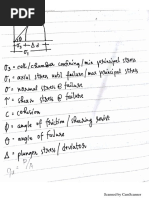 σ3 + Δσ
σ1
σ3 = cell/chamber confining/min principal stress
σ1 = axial stress until failure/max principal stress
σ = normal stress @ failure
τ = shear stress @ failure
c = cohesion
Ø = angle of friction/shearing resist
θ = angle of failure
Δ = plunger stress/deviator
Scanned by CamScanner